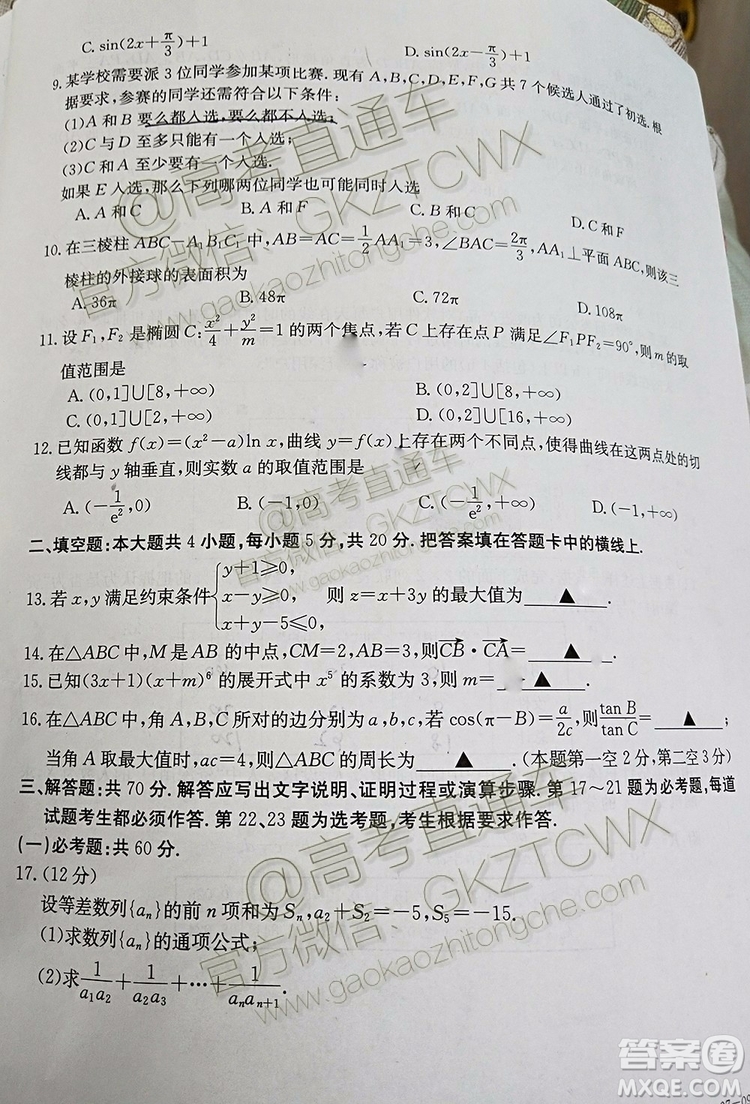 C. sin(2x+π/3)+1 D. sin(2x−π/3)+1
9. 某学校需要派 3 位同学参加某项比赛. 现有 A,B,C,D,E,F,G 共 7 个候选人通过了初选. 根
据要求, 参赛的同学还需符合以下条件:
(1)A 和 B 要么都入选,要么都不入选;
(2)C 与 D 至多只能有一个人入选.
(3)C 和 A 至少要有一人入选.
如果 E 入选,那么下列哪两位同学也可能同时入选
A. A 和 C B. A 和 F C. C 和 G D. C 和 F
10. 在三棱柱 ABC−A₁B₁C₁ 中,AB=AC=1/2 AA₁=3,∠BAC=2π/3,AA₁⊥平面 ABC,则该三
棱柱的外接球的表面积为
A. 36π B. 48π C. 72π D. 108π
11. 设 F₁,F₂ 是椭圆 C: x²/4+y²/m=1 的两个焦点,若 C 上存在点 P 满足∠F₁PF₂=90°,则 m 的取
值范围是
A. (0,1]∪[8,+∞) B. (0,2]∪[8,+∞)
C. (0,1]∪[2,+∞) D. (0,2]∪[16,+∞)
12. 已知函数 f(x)=(x²−a)ln x,曲线 y=f(x)上存在两个不同点,使得曲线在这两点处的切
线都与 y 轴垂直,则实数 a 的取值范围是
A. (−1/e²,0) B. (−1,0) C. (−1/e²,+∞) D. (−1,+∞)
二、填空题:本大题共 4 小题,每小题 5 分,共 20 分. 把答案填在答题卡中的横线上.
13. 若 x,y 满足约束条件{y+1≥0, x−y≥0, x+y−5≤0, 则 z=x+3y 的最大值为 ▲ .
14. 在△ABC 中,M 是 AB 的中点,CM=2,AB=3,则CB·CA= ▲ .
15. 已知(3x+1)(x+m)⁶ 的展开式中 x⁵ 的系数为 3,则 m= ▲ .
16. 在△ABC 中,角 A,B,C 所对的边分别为 a,b,c,若 cos(π−B)=a/2c,则tan B/tan C= ▲ ;
当角 A 取最大值时,ac=4,则△ABC 的周长为 ▲ .(本题第一空 2 分,第二空 3 分)
三、解答题:共 70 分. 解答应写出文字说明、证明过程或演算步骤. 第 17~21 题为必考题,每道
试题考生都必须作答. 第 22、23 题为选考题,考生根据要求作答.
(一)必考题:共 60 分.
17. (12 分)
设等差数列{aₙ}的前 n 项和为 Sₙ,a₂+S₂=−5,S₅=−15.
(1)求数列{aₙ}的通项公式;
(2)求1/a₁a₂+1/a₂a₃+⋯+1/aₙaₙ₊₁.
@高考直通车
官方微信: GKZTCWX
www.gaokaozhitongche.com
@高考直通车
官方微信: GKZTCWX
www.gaokaozhitongche.com
@高考直通车
官方微信: GKZTCWX
www.gaokaozhitongche.com
答案圈
MXQE.COM